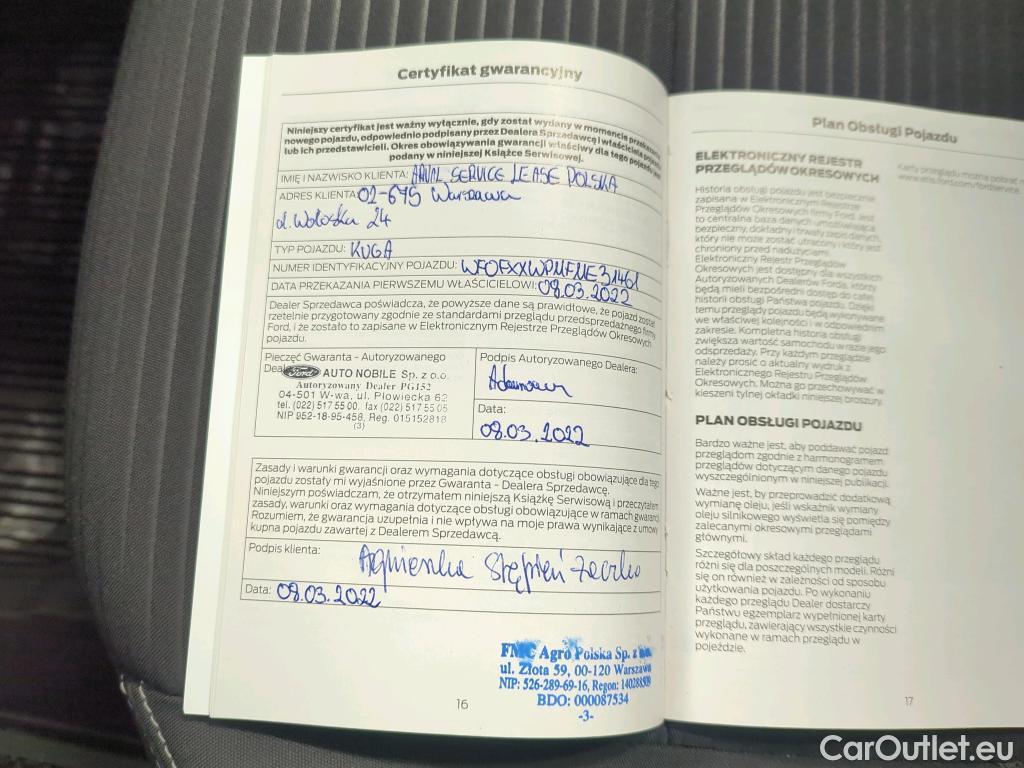 Certyfikat gwarancyjny
Niniejszy certyfikat jest ważny wyłącznie, gdy został wydany w momencie przekazania
nowego pojazdu, odpowiednio podpisany przez Dealera Sprzedawcę i właściciela pojazdu
lub ich przedstawicieli. Okres obowiązywania gwarancji właściwy dla tego pojazdu jest
podany w niniejszej Książce Serwisowej.
IMIĘ I NAZWISKO KLIENTA: ARVAL SERVICE LEASE POLSKA
ADRES KLIENTA: 02-675 Warszawa
ul. Wołoska 24
TYP POJAZDU: KUGA
NUMER IDENTYFIKACYJNY POJAZDU: WF0FXXWPMFME31461
DATA PRZEKAZANIA PIERWSZEMU WŁAŚCICIELOWI: 08.03.2022
Dealer Sprzedawca poświadcza, że powyższe dane są prawidłowe, że pojazd został
rzetelnie przygotowany zgodnie ze standardami przeglądu przedsprzedażnego firmy
Ford, i że zostało to zapisane w Elektronicznym Rejestrze Przeglądów Okresowych
pojazdu.
Pieczęć Gwaranta - Autoryzowanego
Ford AUTO NOBILE Sp. z o.o.
Autoryzowany Dealer PG152
04-501 W-wa, ul. Płowiecka 62
tel. (022) 517 55 00, fax (022) 517 55 05
NIP 952-18-95-458, Reg. 015152818
(3)
Podpis Autoryzowanego Dealera:
Data:
08.03.2022
Zasady i warunki gwarancji oraz wymagania dotyczące obsługi obowiązujące dla tego
pojazdu zostały mi wyjaśnione przez Gwaranta - Dealera Sprzedawcę.
Niniejszym poświadczam, że otrzymałem niniejszą Książkę Serwisową i przeczytałem
zasady, warunki oraz wymagania dotyczące obsługi obowiązujące w ramach gwarancji.
Rozumiem, że gwarancja uzupełnia i nie wpływa na moje prawa wynikające z umowy
kupna pojazdu zawartej z Dealerem Sprzedawcą.
Podpis klienta: Agnieszka Stępień
Data: 08.03.2022
FMC Agro Polska Sp. z o.o.
ul. Złota 59, 00-120 Warszawa
NIP: 526-289-69-16, Regon: 140288509
BDO: 000087534
-3-
16
Plan Obsługi Pojazdu
ELEKTRONICZNY REJESTR
PRZEGLĄDÓW OKRESOWYCH
Historia obsługi pojazdu jest bezpiecznie
zapisana w Elektronicznym Rejestrze
Przeglądów Okresowych firmy Ford. Jest
to centralna baza danych umożliwiająca
bezpieczny, dokładny i trwały zapis danych,
który nie może zostać utracony i który jest
chroniony przed nadużyciami.
Elektroniczny Rejestr Przeglądów
Okresowych jest dostępny dla wszystkich
Autoryzowanych Dealerów Forda, którzy
będą mieli bezpośredni dostęp do całej
historii obsługi Państwa pojazdu. Dzięki
temu przeglądy pojazdu będą wykonywane
we właściwej kolejności i w odpowiednim
zakresie. Kompletna historia obsługi
zwiększa wartość samochodu w razie jego
odsprzedaży. Przy każdym przeglądzie
należy prosić o aktualny wydruk z
Elektronicznego Rejestru Przeglądów
Okresowych. Można go przechowywać w
kieszeni tylnej okładki niniejszej broszury.
PLAN OBSŁUGI POJAZDU
Bardzo ważne jest, aby poddawać pojazd
przeglądom zgodnie z harmonogramem
przeglądów dotyczącym danego pojazdu
wyszczególnionym w niniejszej publikacji.
Ważne jest, by przeprowadzić dodatkową
wymianę oleju, jeśli wskaźnik wymiany
oleju silnikowego wyświetla się pomiędzy
zalecanymi okresowymi przeglądami
głównymi.
Szczegółowy skład każdego przeglądu
różni się dla poszczególnych modeli. Różni
się on również w zależności od sposobu
użytkowania pojazdu. Po wykonaniu
każdego przeglądu Dealer dostarczy
Państwu egzemplarz wypełnionej karty
przeglądu, zawierający wszystkie czynności
wykonane w ramach przeglądu w
pojeździe.
Karty przeglądu można pobrać
www.etis.ford.com/fordservice
17
CarOutlet.eu